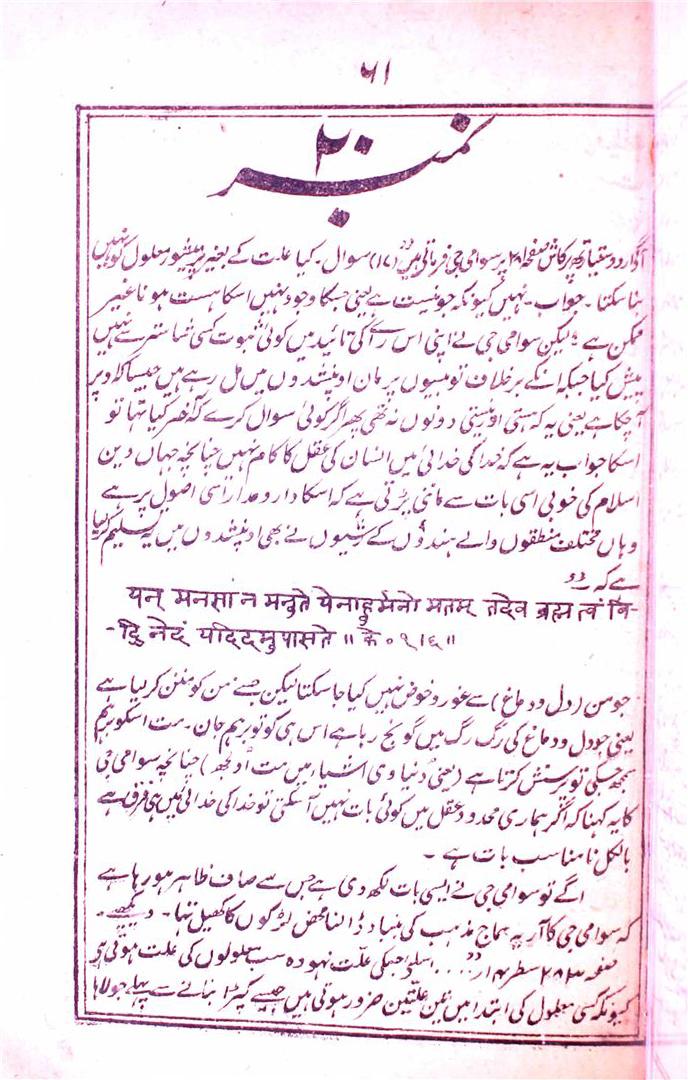 ۶۱
نمبر ۲۰
اگر اردو ستیارتھ پرکاش صفحہ ۲۸۱ پر سوامی جی فرماتے ہیں (۱۷) سوال۔ کیا علت کے بغیر پرمیشور معلول کو نہیں
بنا سکتا۔ جواب۔ نہیں کیونکہ جو نیست ہے یعنی جسکا وجود نہیں اسکا ہست ہونا غیر
ممکن ہے لیکن سوامی جی نے اپنی اس رائے کی تائید میں کوئی ثبوت کسی شاستر سے نہیں
پیش کیا جبکہ انکے برخلاف تو بیسیوں پرمان اوپنشدوں میں مل رہے ہیں جیسا کہ اوپر
آچکا ہے یعنی یہ کہ ہستی اور نیستی دونوں نہ تھی پھر اگر کوئی سوال کرے کہ آخر کیا تھا تو
اسکا جواب یہ ہے کہ خدا کی خدائی میں انسان کی عقل کا کام نہیں چنانچہ جہاں دین
اسلام کی خوبی اسی بات سے ماننی پڑتی ہے کہ اسکا دار و مدار اسی اصول پر ہے
وہاں مختلف منطقوں والے ہندوؤں کے رشیوں نے بھی اوپنشدوں میں یہ تسلیم کر لیا
ہے کہ
यन् मनसा न मनुते येनाहुर्मनो मतम् तदेव ब्रह्म त्वं वि-
-द्धि नेदं यदिदमुपासते ॥ के० १।६॥
جو من (دل و دماغ) سے غور و خوض نہیں کیا جا سکتا لیکن جسے من کو منن کر لیا ہے
یعنی جو دل و دماغ کی رگ رگ میں گونج رہا ہے اس ہی کو تو برہم جان۔ مت اسکو برہم
سمجھ جسکی تو پرستش کرتا ہے (یعنی دنیاوی اشیاء میں مت اولجھ) چنانچہ سوامی جی
کا یہ کہنا کہ اگر ہماری محدود عقل میں کوئی بات نہیں آ سکتی تو خدا کی خدائی میں ہی فرق ہے
بالکل نامناسب بات ہے۔
اگے تو سوامی جی نے ایسی بات لکھ دی ہے جس سے صاف ظاہر ہو رہا ہے
کہ سوامی جی کا آریہ سماج مذہب کی بنیاد ڈالنا محض لڑکوں کا کھیل تھا۔ دیکھیے۔
صفحہ ۲۸۲ سطر ۴ از .... اسلیے جسکی علت نہو وہ سب معلولوں کی علت ہوتی ہے
کیونکہ کسی معلول کی ابتدا میں تین علتیں ضرور ہوتی ہیں جیسے کپڑا بنانے سے پہلے جولاہا